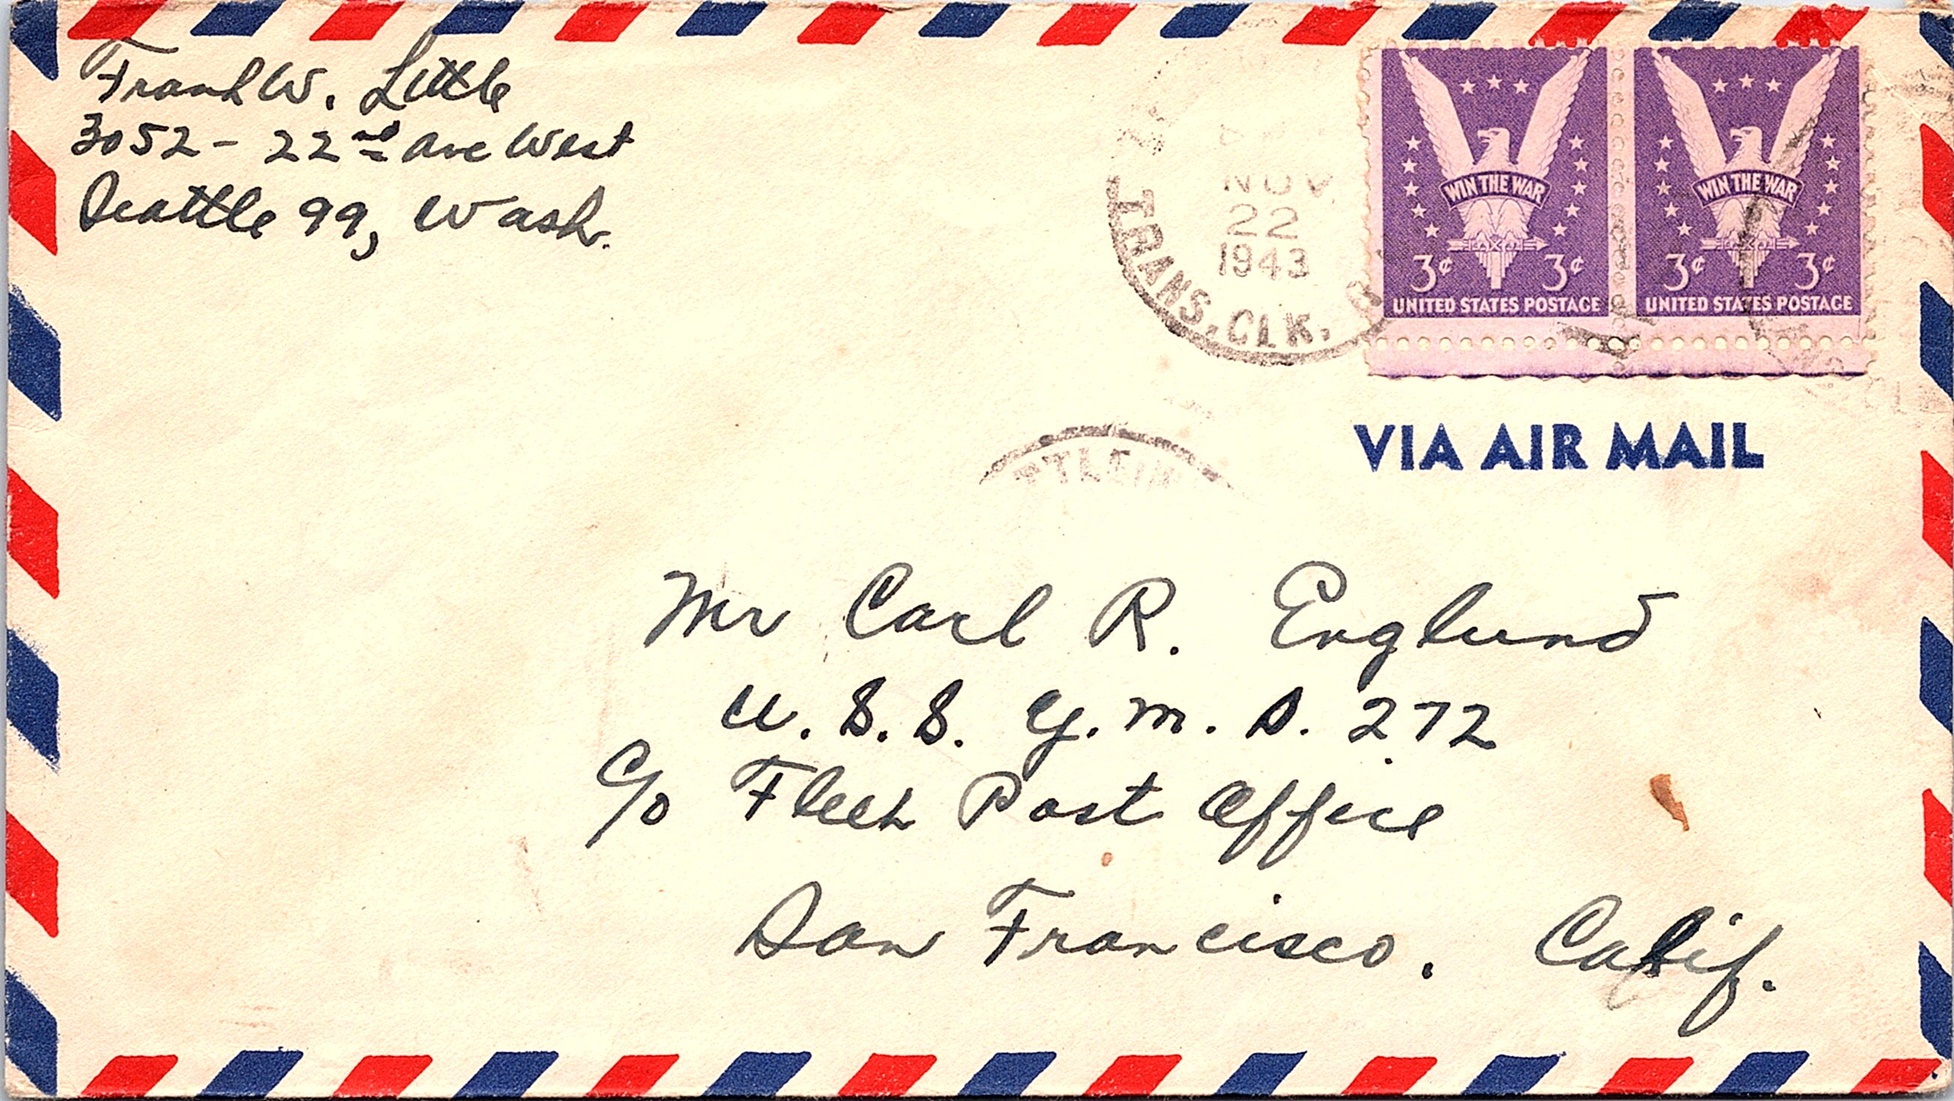 Frank W. Little
3052 - 22nd Ave West
Seattle 99, Wash.
NOV.
22
1943
TRANS. CLK.
WIN THE WAR
3¢ 3¢
UNITED STATES POSTAGE
WIN THE WAR
3¢ 3¢
UNITED STATES POSTAGE
VIA AIR MAIL
Mr Carl R. Englund
U.S.S. Y.M.S. 272
c/o Fleet Post Office
San Francisco. Calif.